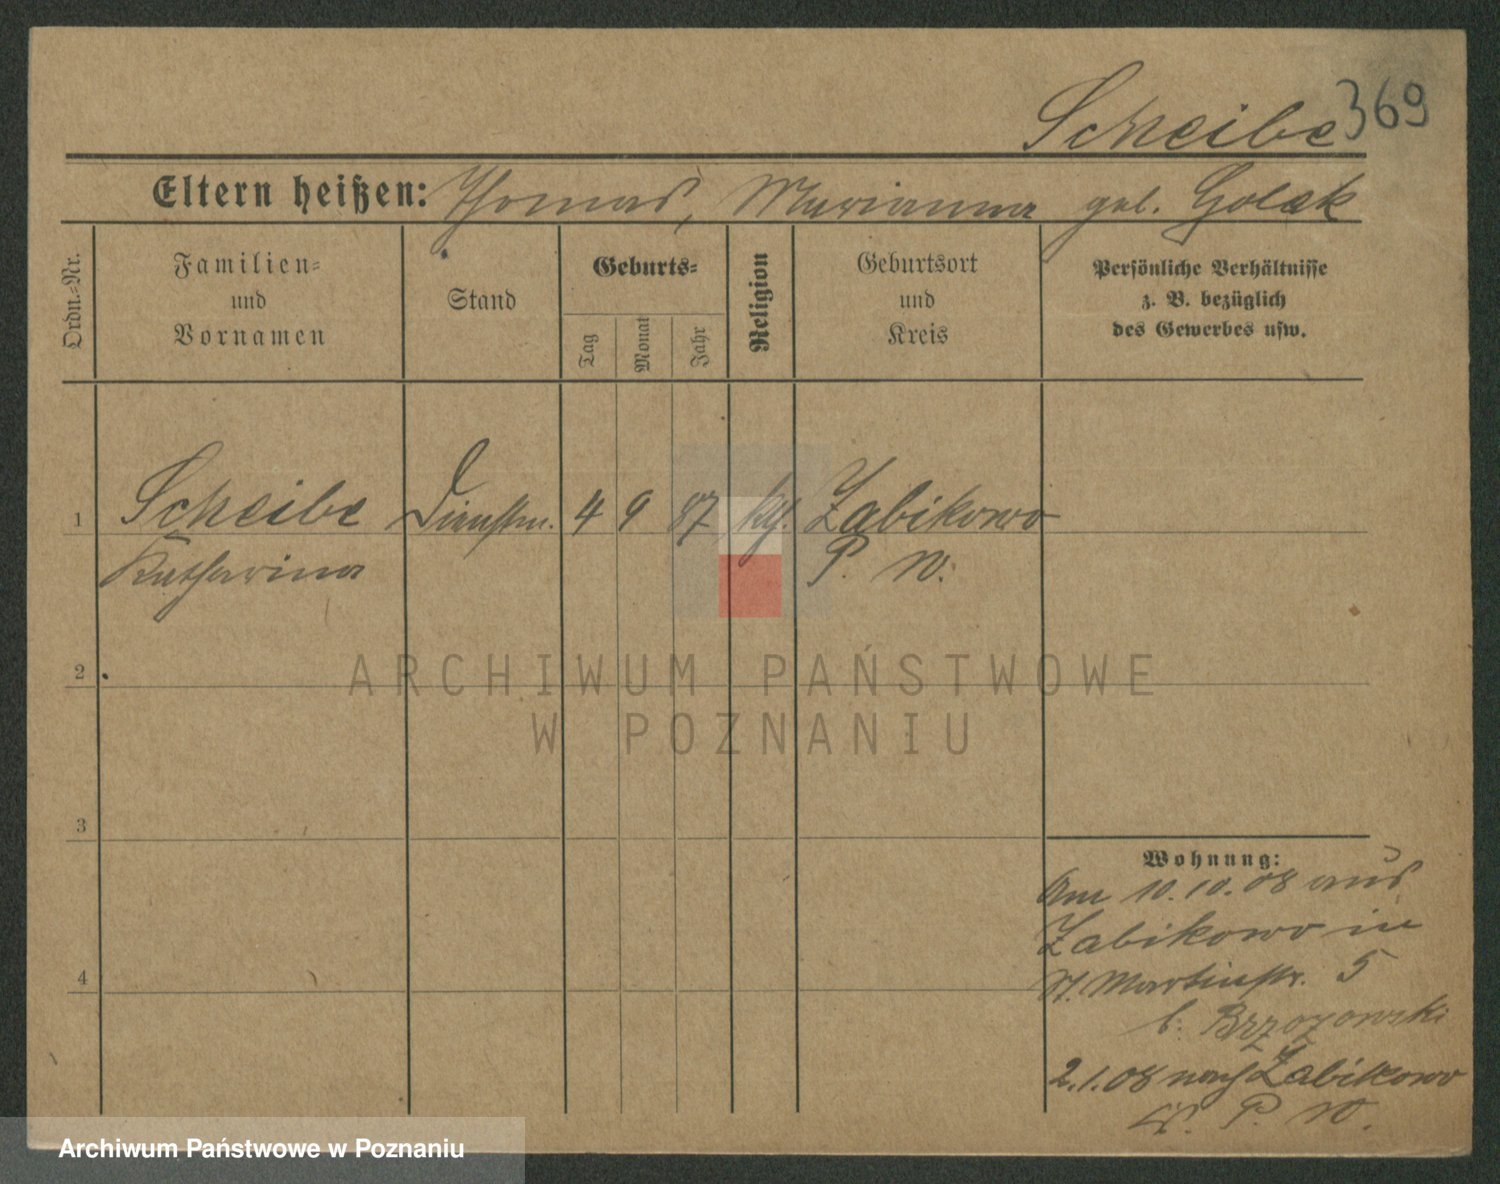 Scheibe 369
Eltern heißen: Thomas, Marianna geb. Golak
Ordn.-Nr.
Familien-
und
Vornamen
Stand
Geburts-
Tag
Monat
Jahr
Religion
Geburtsort
und
Kreis
Persönliche Verhältnisse
z. B. bezüglich
des Gewerbes usw.
1 Scheibe Dienstm. 4 9 87 kth. Zabikowo
Katharina P. W.
2
ARCHIWUM PAŃSTWOWE
W POZNANIU
3
Wohnung:
Am 10.10.08 aus
Zabikowo in
4 St. Martinstr. 5
b. Brzozowski
2.1.08 nach Zabikowo
P. W.
Archiwum Państwowe w Poznaniu